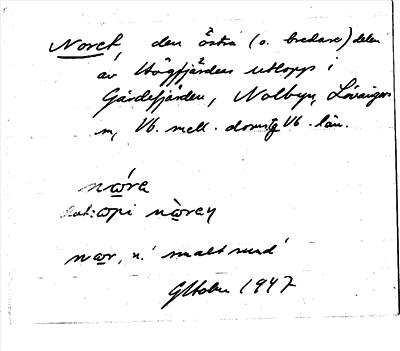 Noret, den östra (o. bredare) delen
av Högfjärdens utlopp i
Gärdefjärden, Nolbyn, Lövånger
sn, Vb. mell. domsg Vb. län.
nɷra
dat: ɷpi nɷ̀rey
nɷr, n. 'smalt sund'
GHolm 1947